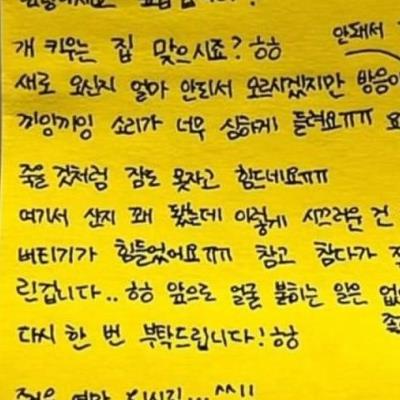 개 키우는 집 맞으시죠? ㅎㅎ 안돼서
새로 오신지 얼마 안되서 모르시겠지만 방음이
끼잉끼잉 소리가 너무 심하게 들려요ㅠㅠ
죽을 것처럼 잠도 못자고 힘드네요ㅠㅠ
여기서 산지 꽤 됐는데 이렇게 시끄러운 건
버티기가 힘들었어요ㅠㅠ 참고 참다가
린겁니다.. ㅎㅎ 앞으로 얼굴 붉히는 일은 없
다시 한 번 부탁드립니다! ㅎㅎ